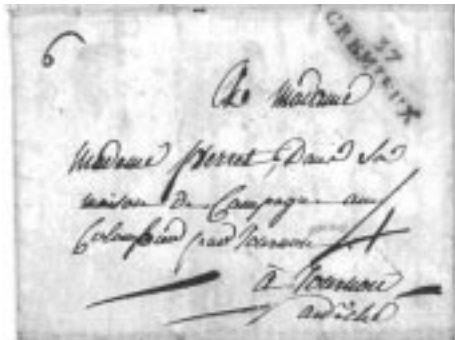 6
37
CREMIEUX
A Madame
Madame Perret, Dans Sa
maison de Campagne au
Colombier près Tournon
4
à Tournon
ardèche